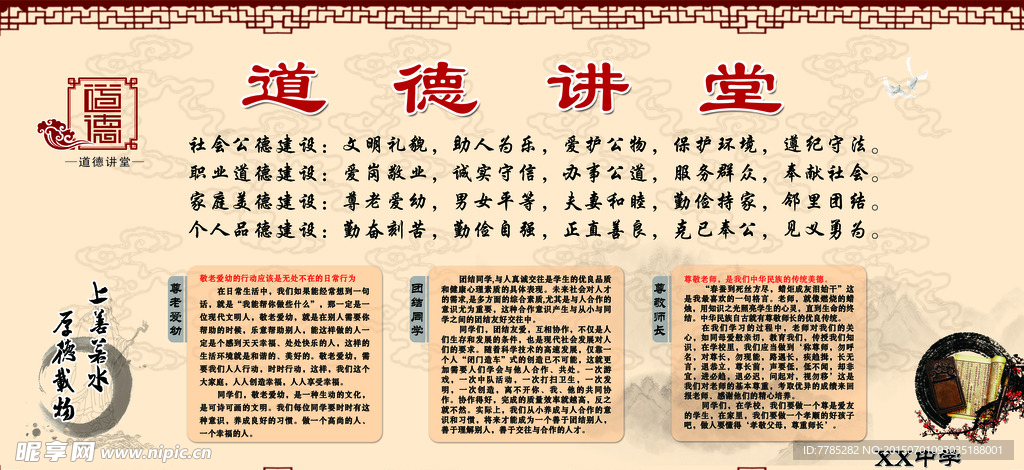 道德讲堂
道德
道德讲堂
社会公德建设：文明礼貌，助人为乐，爱护公物，保护环境，遵纪守法。
职业道德建设：爱岗敬业，诚实守信，办事公道，服务群众，奉献社会。
家庭美德建设：尊老爱幼，男女平等，夫妻和睦，勤俭持家，邻里团结。
个人品德建设：勤奋刻苦，勤俭自强，正直善良，克已奉公，见义勇为。
上善若水
厚德载物
尊老爱幼
敬老爱幼的行动应该是无处不在的日常行为
在日常生活中，我们如果能经常想到一句
话，就是“我能帮你做些什么”，那一定是一
位现代文明人，敬老爱幼，就是在别人需要你
帮助的时候，乐意帮助别人，能这样做的人一
定是个感到天天幸福、处处快乐的人，这样的
生活环境就是和谐的、美好的。敬老爱幼，需
要我们人人行动，时时行动，这样，我们这个
大家庭，人人创造幸福，人人享受幸福。
同学们，敬老爱幼，是一种生动的文化，
是可诗可画的文明。我们每位同学要时时有这
种意识，养成良好的习惯。做一个高尚的人、
一个幸福的人。
团结同学
团结同学，与人真诚交往是学生的优良品质
和健康心理意识的具体表现。未来社会对人才
的需求，是多方面的综合素质，尤其是与人合作的
意识尤为重要，这种合作意识产生与从小与同
学之间的团结友好交往中。
同学们，团结友爱，互相协作，不仅是人
们生存和发展的条件，也是现代社会发展对人
们的要求。随着科学技术的高速发展，仅靠一
个人“闭门造车”式的创造已不可能，这就更
加需要人们学会与他人合作、共处。一次游
戏，一次中队活动，一次打扫卫生，一次发
明，一次创造，离不开你、我、他的共同协
作。协作得好，完成的质量效率就越高，反之
就不然。实际上，我们从小养成与人合作的意
识和习惯，将来才能成为一个善于团结别人，
善于理解别人，善于交往与合作的人才。
尊敬师长
尊敬老师，是我们中华民族的传统美德。
“春蚕到死丝方尽，蜡炬成灰泪始干”这
是我最喜欢的一句格言。老师，就像燃烧的蜡
烛，用知识之光照亮学生的心灵，直到生命的终
结。中华民族自古就有尊敬师长的优良传统。
在我们学习的过程中，老师对我们的关
心，如同母爱般亲切，教育我们，传授我们知
识，在学校里，我们应当做到‘称尊师，勿呼
名，对尊长，勿现能，路遇长，疾趋揖，长无
言，退恭立，尊长前，声要低，低不闻，却非
宜，进必趋，退必迟，问起对，视勿移’这是
我们对老师的基本尊重，考取优异的成绩来回
报老师、感谢他们的精心培养。
同学们，在学校，我们要做一个尊是爱友
的学生，在家里，我们要做一个孝顺的好孩子
吧，做人要懂得‘孝敬父母，尊重师长’。
XX中学
昵享网 www.nipic.cn
ID:7785282 NO:20150701093035188001